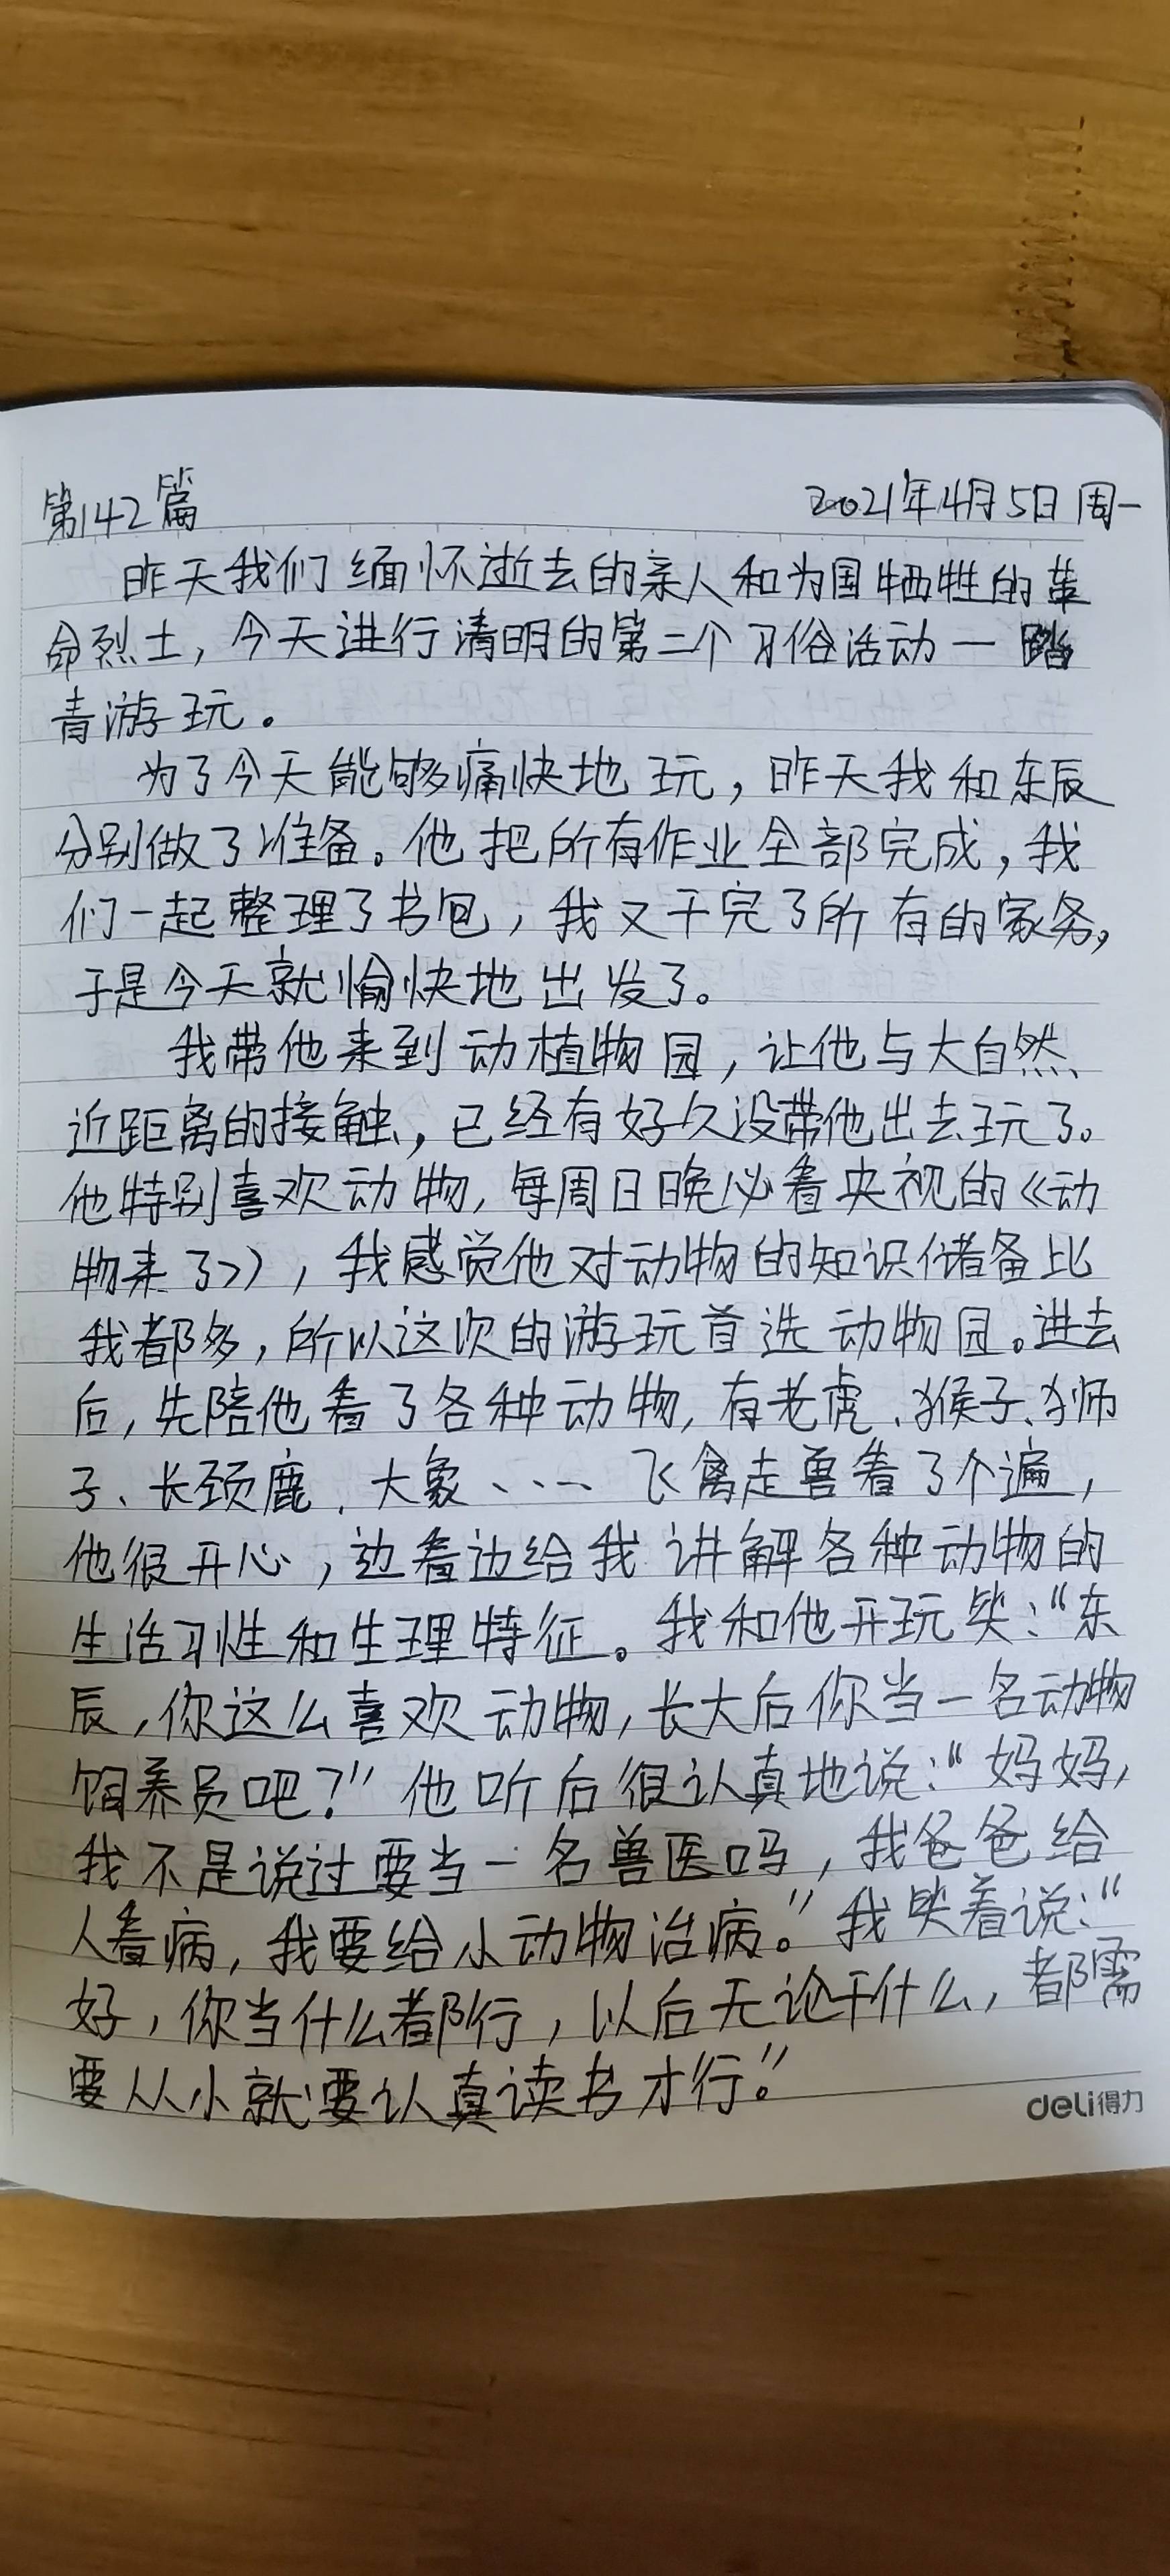 第142篇 2021年4月5日 周一
昨天我们缅怀逝去的亲人和为国牺牲的革
命烈士，今天进行清明的第二个习俗活动一踏
青游玩。
为了今天能够痛快地玩，昨天我和东辰
分别做了准备。他把所有作业全部完成，我
们一起整理了书包，我又干完了所有的家务，
于是今天就愉快地出发了。
我带他来到动植物园，让他与大自然
近距离的接触，已经有好久没带他出去玩了。
他特别喜欢动物，每周日晚必看央视的《动
物来了》，我感觉他对动物的知识储备比
我都多，所以这次的游玩首选动物园。进去
后，先陪他看了各种动物，有老虎、猴子、狮
子、长颈鹿、大象、…飞禽走兽看了个遍，
他很开心，边看边给我讲解各种动物的
生活习性和生理特征。我和他开玩笑：“东
辰，你这么喜欢动物，长大后你当一名动物
饲养员吧？”他听后很认真地说：“妈妈，
我不是说过要当一名兽医吗，我爸爸给
人看病，我要给小动物治病。”我笑着说：“
好，你当什么都行，以后无论干什么，都需
要从小就要认真读书才行。”
deli得力